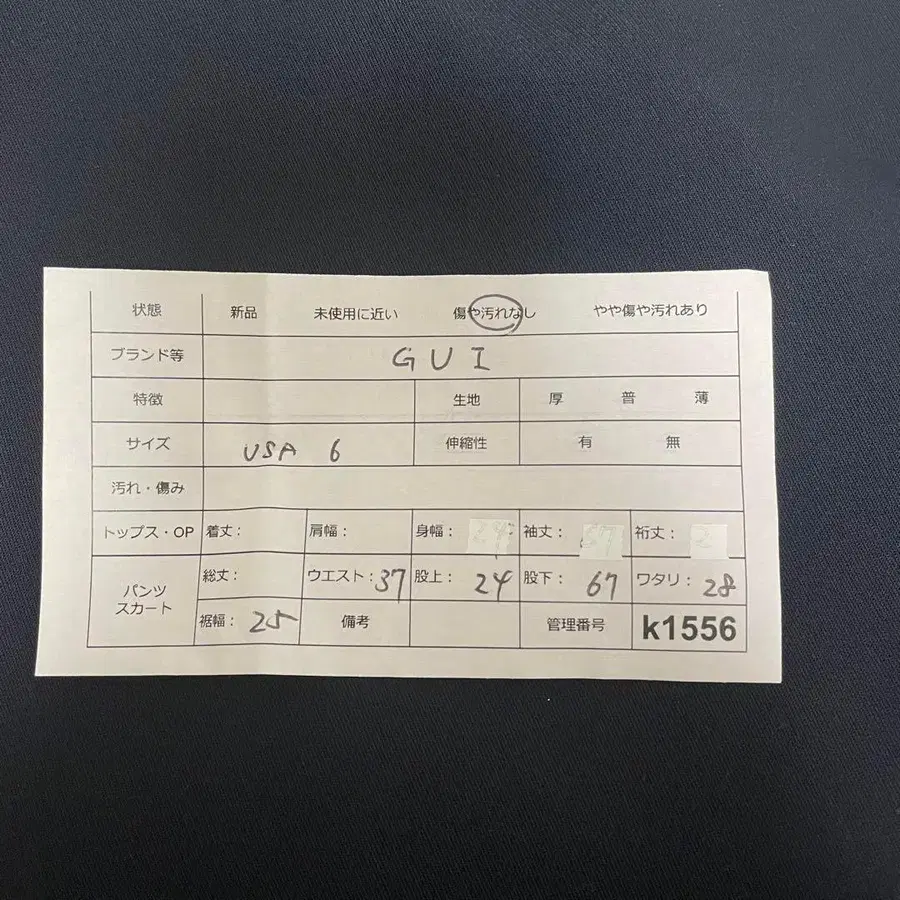 状態 新品 未使用に近い 傷や汚れなし やや傷や汚れあり
ブランド等 GUI
特徴 生地 厚 普 薄
サイズ USA 6 伸縮性 有 無
汚れ・傷み
トップス・OP 着丈: 肩幅: 身幅: 袖丈: 裄丈:
パンツ スカート 総丈: ウエスト:37 股上:24 股下:67 ワタリ:28
裾幅:25 備考 管理番号 k1556